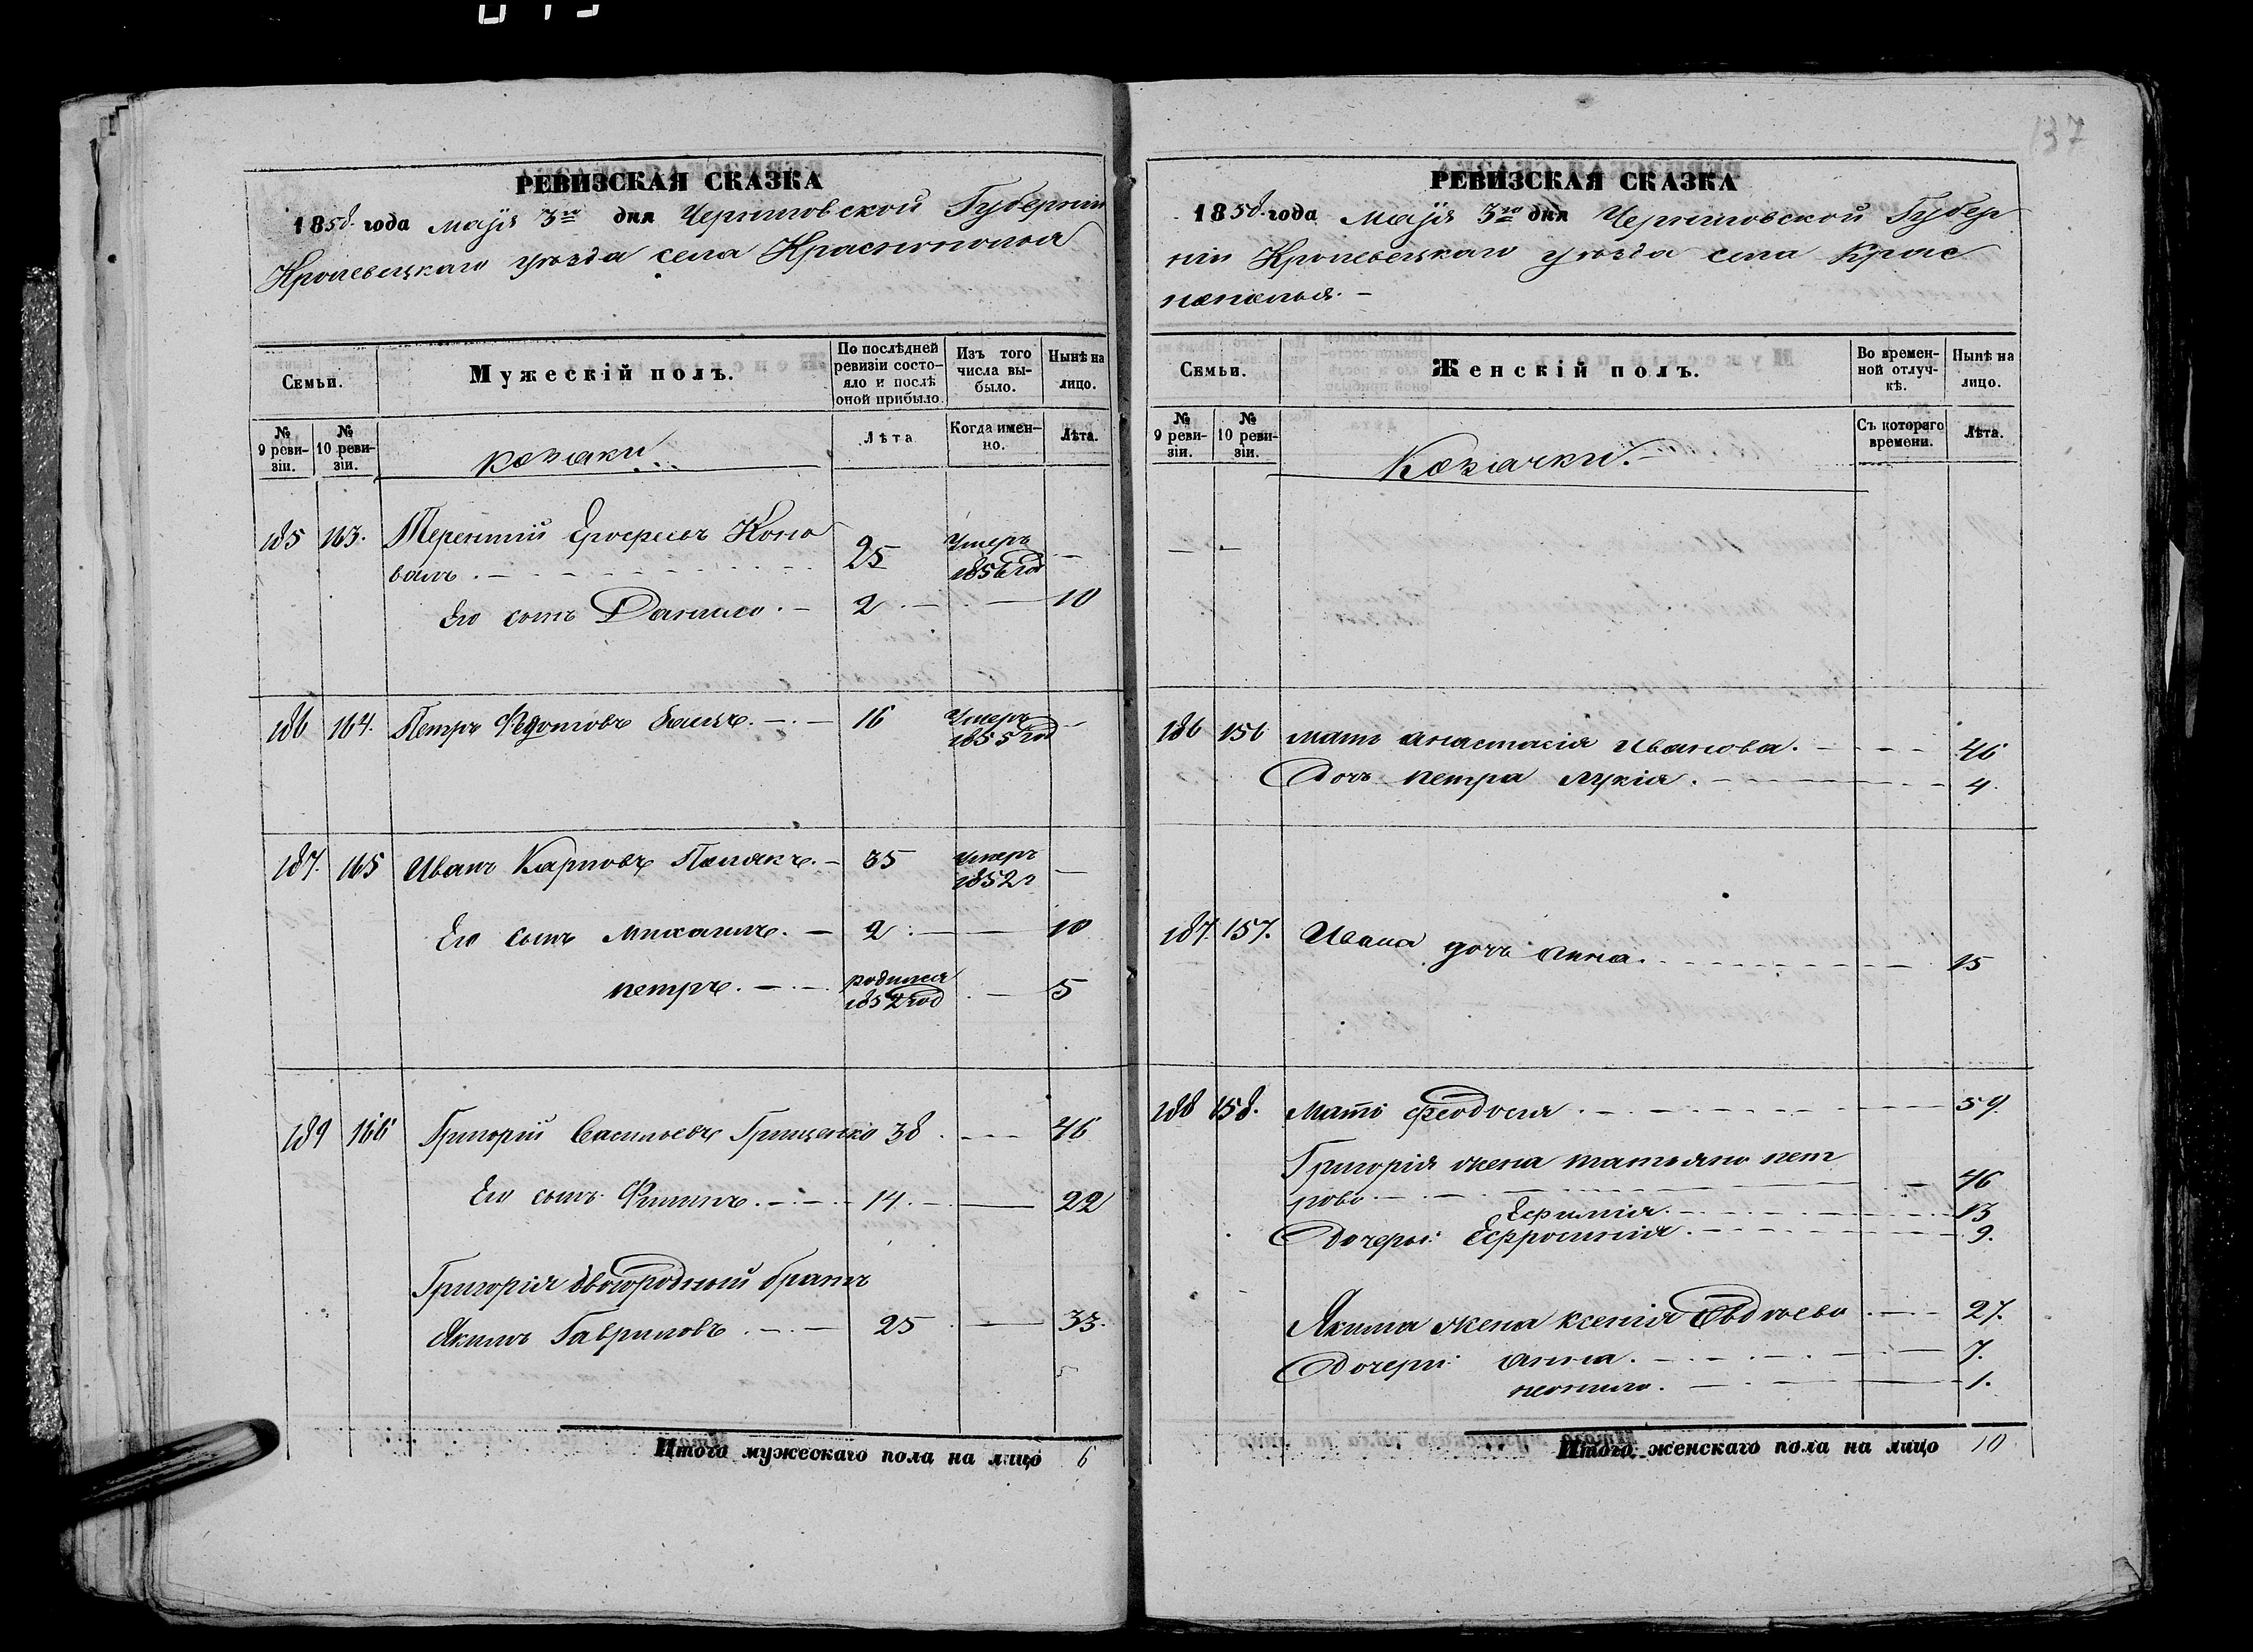 137
РЕВИЗСКАЯ СКАЗКА
1858 года маія 3го дня Черниговской Губерніи
Кролевецкаго уезда села Краснополья
Семьи.
Мужескій полъ.
По послѣдней ревизіи состояло и послѣ оной прибыло
Изъ того числа выбыло.
Нынѣ на лицо.
№ 9 ревизіи.
№ 10 ревизіи.
козаки
Лѣта
Когда именно.
Лѣта.
185 163. Терентій Ерофеевъ Коно
валъ. 25 Умеръ 1856 год —
Его сынъ Данило. — 2. — — 10
186 164. Петръ Федотовъ — 16 Умеръ 1855 год —
187. 165 Иванъ Карповъ Полякъ. — 35 Умеръ 1852 г —
Его сынъ Михаилъ. — 2. — — 10
петръ. — родился год — 5
189 166 Григорій Васильевъ Грищенко 38 — 46
Его сынъ Филипъ. — 14. — 22
Григорія двоюродный братъ
Якимъ Гавриловъ — 25 — 33.
Итого мужескаго пола на лицо 6
РЕВИЗСКАЯ СКАЗКА
1858 года маія 3го дня Черниговской Губер
ніи Кролевецкаго уезда села Крас
нополья. —
Семьи.
Женскій полъ.
Во временной отлучкѣ.
Нынѣ на лицо.
№ 9 ревизіи.
№ 10 ревизіи.
Козачки. —
Съ котораго времени.
Лѣта.
— —
186 156 мать анастасія Иванова. — 46
Дочь петра лукія. — 4.
187. 157. Ивана дочь анна. — 15
188 158. Мать феодосия. — 59.
Григорія жена татьяна пет
рова. — 46
Ефимія. — 13
Дочеры: Ефросинія. — 9.
Якима жена ксенія — 27.
Дочери: анна. — 7.
неонила. — 1.
Итого женскаго пола на лицо 10